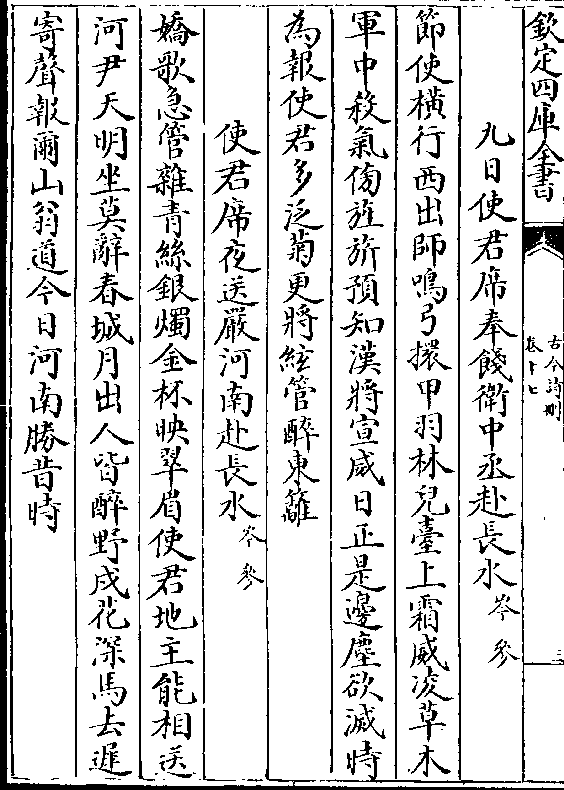 欽定四庫全書
古今詩刪
卷十七
三
九日使君席奉餞衛中丞赴長水 岑參
節使橫行西出師鳴弓擐甲羽林兒臺上霜威凌草木
軍中殺氣傍旌旂預知漢將宣威日正是邊塵欲滅時
為報使君多泛菊更將絃管醉東籬
使君席夜送嚴河南赴長水 岑參
嬌歌急管雜青絲銀燭金杯映翠眉使君地主能相送
河尹天明坐莫辭春城月出人皆醉野戍花深馬去遲
寄聲報爾山翁道今日河南勝昔時